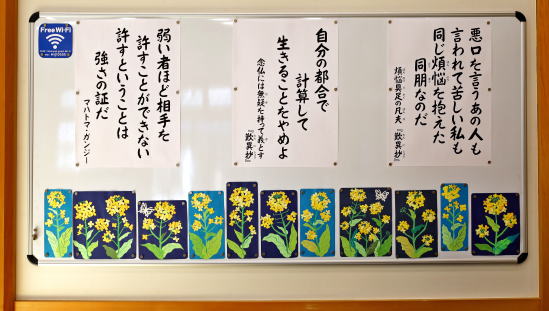 Free Wi-Fi
悪口を言うあの人も
言われて苦しい私も
同じ煩悩を抱えた
同朋なのだ
煩悩具足の凡夫 『歎異抄』
自分の都合で
計算して
生きることをやめよ
念仏には無疑を持って義とす
『歎異抄』
弱い者ほど相手を
許すことができない
許すということは
強さの証だ
マハトマ・ガンジー